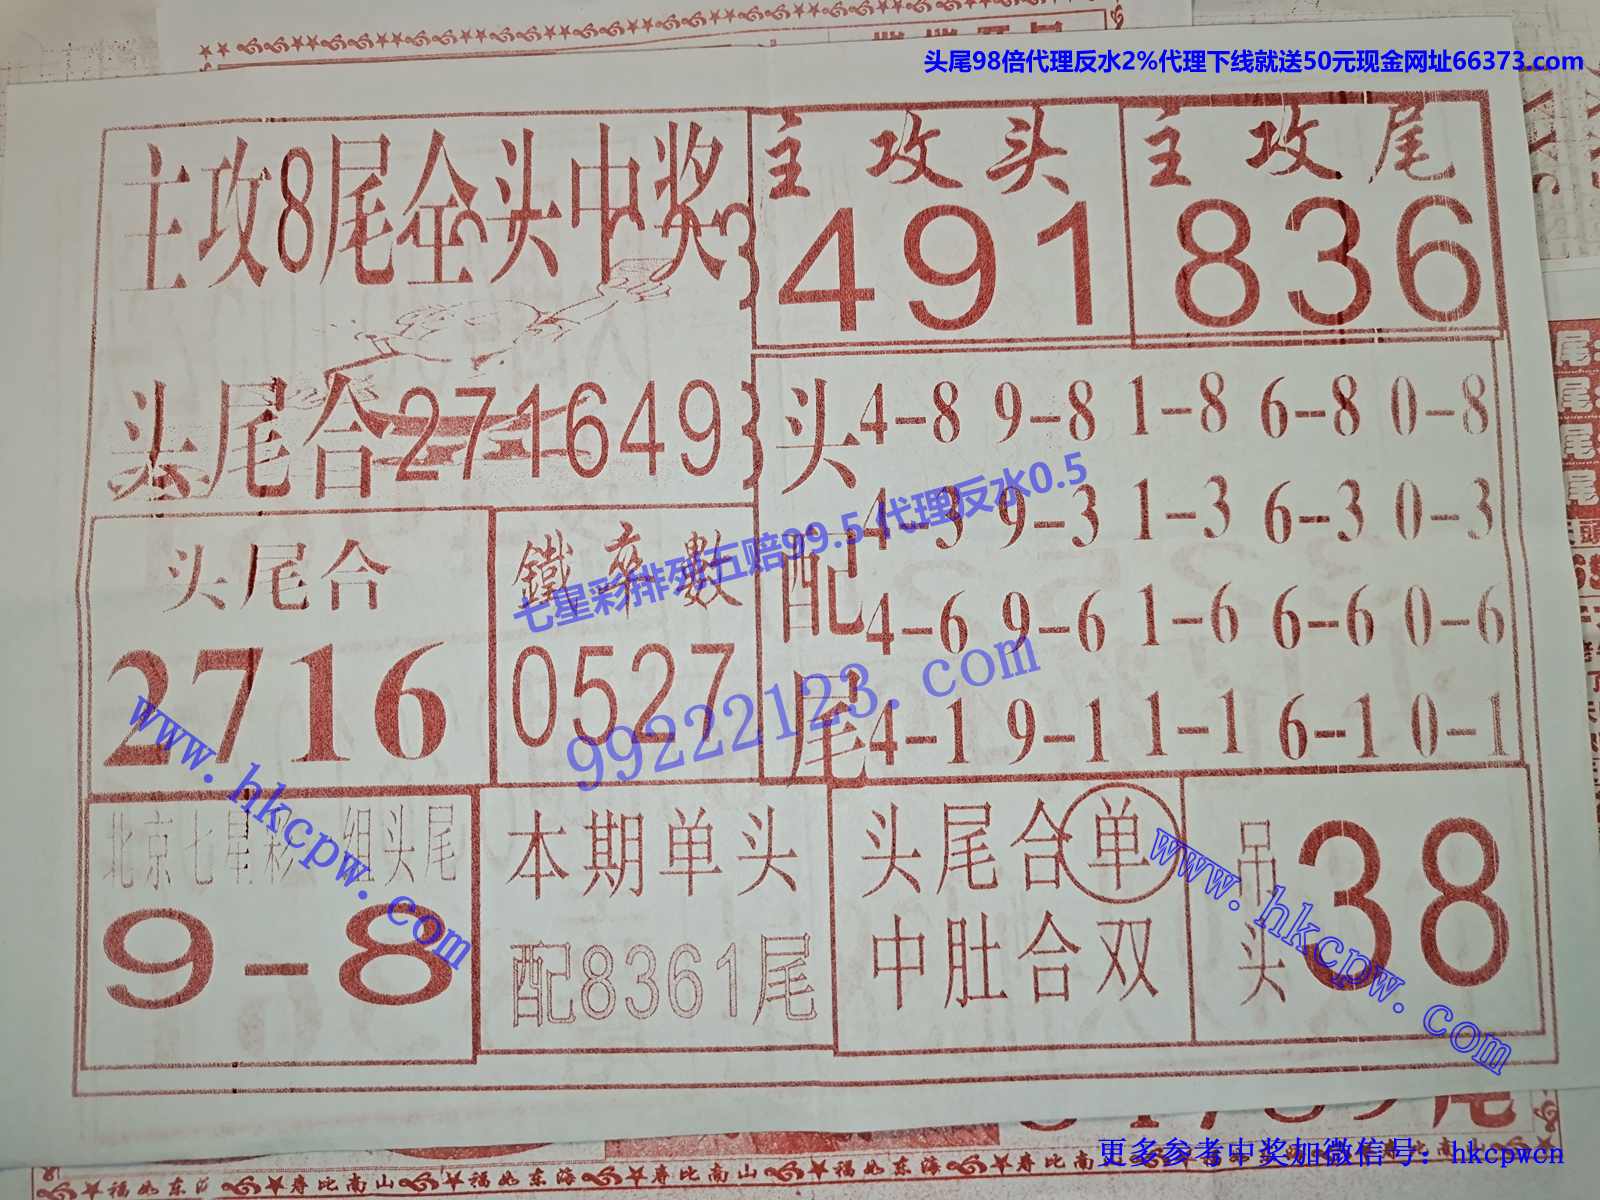 头尾98倍代理反水2%代理下线就送50元现金网址66373.com
主攻8尾全头中奖
主攻头
491
主攻尾
836
头尾合271649
头配尾
4-8 9-8 1-8 6-8 0-8
4-3 9-3 1-3 6-3 0-3
4-6 9-6 1-6 6-6 0-6
4-1 9-1 1-1 6-1 0-1
头尾合
2716
鐵率數
0527
七星彩排列五赔99.5 代理反水0.5
99222123.com
www.hkcpw.com
北京七星彩一组头尾
9-8
本期单头
配8361尾
头尾合单
中肚合双
吊头
38
www.hkcpw.com
更多参考中奖加微信号: hkcpwcn
福如东海 寿比南山 福如东海 寿比南山 福如东海 寿比南